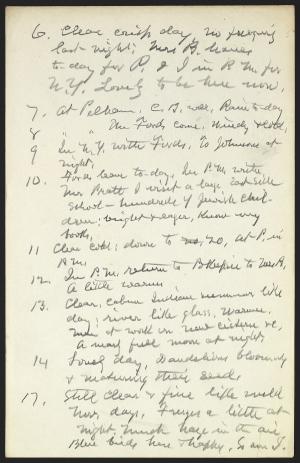 6. Clear, crisp day, no freezing
last night; Mrs B. leaves
to-day for P. & I in P.M. for
N.Y. Lovely to be here now.
7, At Pelham, C. B. well, Rain to-day
8 " " The Fords come, windy & cold,
9 In N.Y. with Fords, To Johnsons at
night,
10. Fords leave to-day, In P.M. with
Mrs Pratt I visit a large East side
School — hundreds of Jewish chil-
dren; bright & eager, know my
books,
11 Clear cold; down to 20, at P, in
P.M.
12. In P.M. return to P'Kepsie to Mrs B,
A little warmer
13. Clear, calm Indian summer like
day; river like glass, warmer.
men at work on new cistern &c,
A mary full moon at night,
14 Lovely day, Dandelions blooming
& maturing their seeds
17. Still clear & fine little mild
Nov. days, Freezes a little at
night much haze in the air
Blue birds here & happy, So am I.